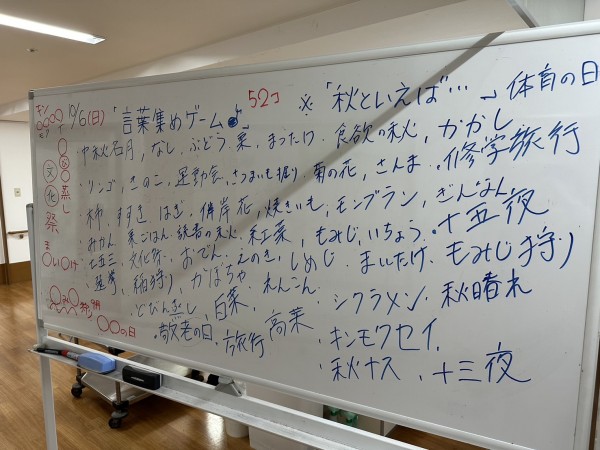 10/6(日) 「言葉集めゲーム♪」 52コ ※「秋といえば…」 体育の日
・中秋名月、なし、ぶどう、栗、まつたけ、食欲の秋、かかし
・リンゴ、きのこ、運動会、さつまいも掘り、菊の花、さんま・修学旅行
・柿、すすき、はぎ、彼岸花、焼きいも、モンブラン、ぎんなん
・みかん、栗ごはん、読書の秋、紅葉、もみじ、いちょう・十五夜
・七五三、文化祭、おでん、えのき、しめじ、まいたけ、もみじ狩り
稲狩り、かぼちゃ、れんこん
どびんむし、白菜
・シクラメン、秋晴れ
・敬老の日、旅行
・キンモクセイ、
・秋ナス、・十三夜
キン
〇〇〇〇
文化祭
蒸し
ま〇い〇け
〇〇の日